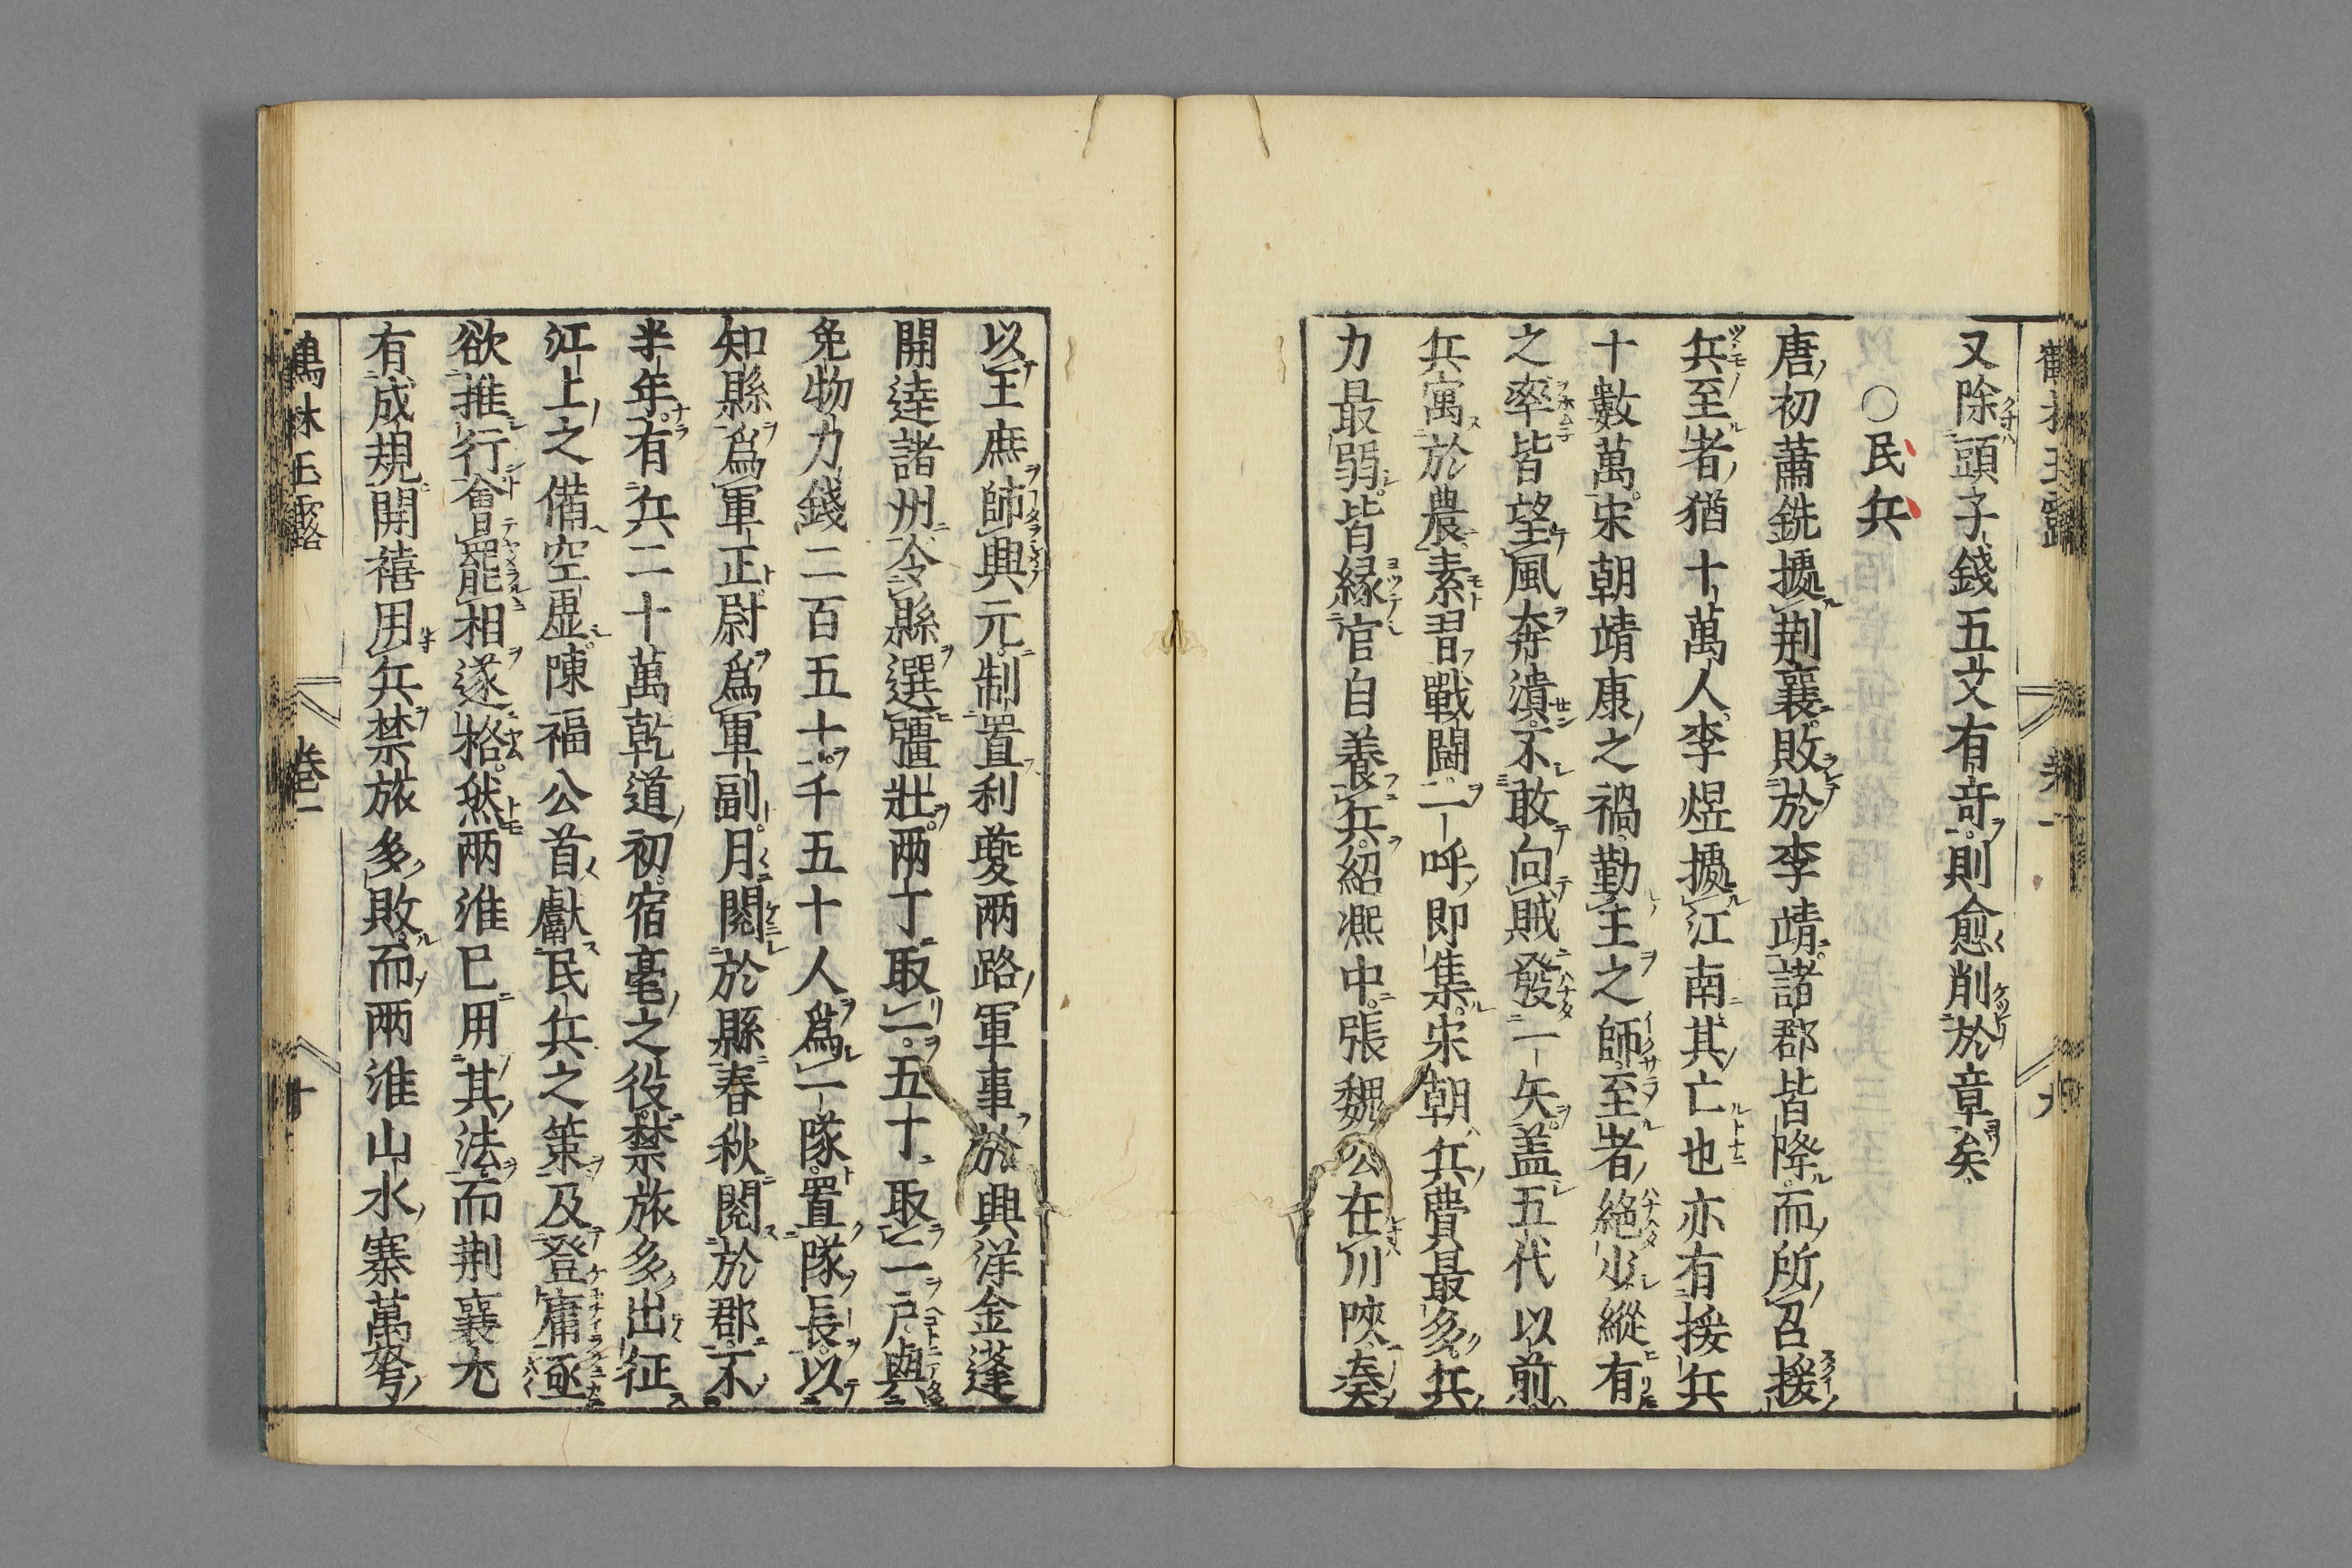 又除頭子錢五文有奇則愈削於章矣
○民兵
唐初蕭銑據荆襄敗於李靖諸郡皆降而所召援
兵至者猶十萬人李煜據江南其亡也亦有援兵
十數萬宋朝靖康之禍勤王之師至者絶少縱有
之率皆望風奔潰不敢向賊發一矢盖五代以前
兵寓於農素習戰鬪一呼即集宋朝兵費最多兵
力最弱皆縁官自養兵紹凞中張魏公在川陝奏
以王庶師興元制置利夔兩路軍事於興洋金蓬
開逹諸州令縣選彊壯兩丁取一五十取二戸與
免物力錢二百五十千五十人爲一隊置隊長以
知縣爲軍正尉爲軍副月閱於縣春秋閱於郡不
半年有兵二十萬乾道初宿亳之役禁旅多出征
江上之備空虚陳福公首獻民兵之策及登庸亟
欲推行會罷相遂格然兩淮已用其法而荆襄尤
有成規開禧用兵禁旅多敗而兩淮山水寨萬弩
鶴林玉露 卷一 十